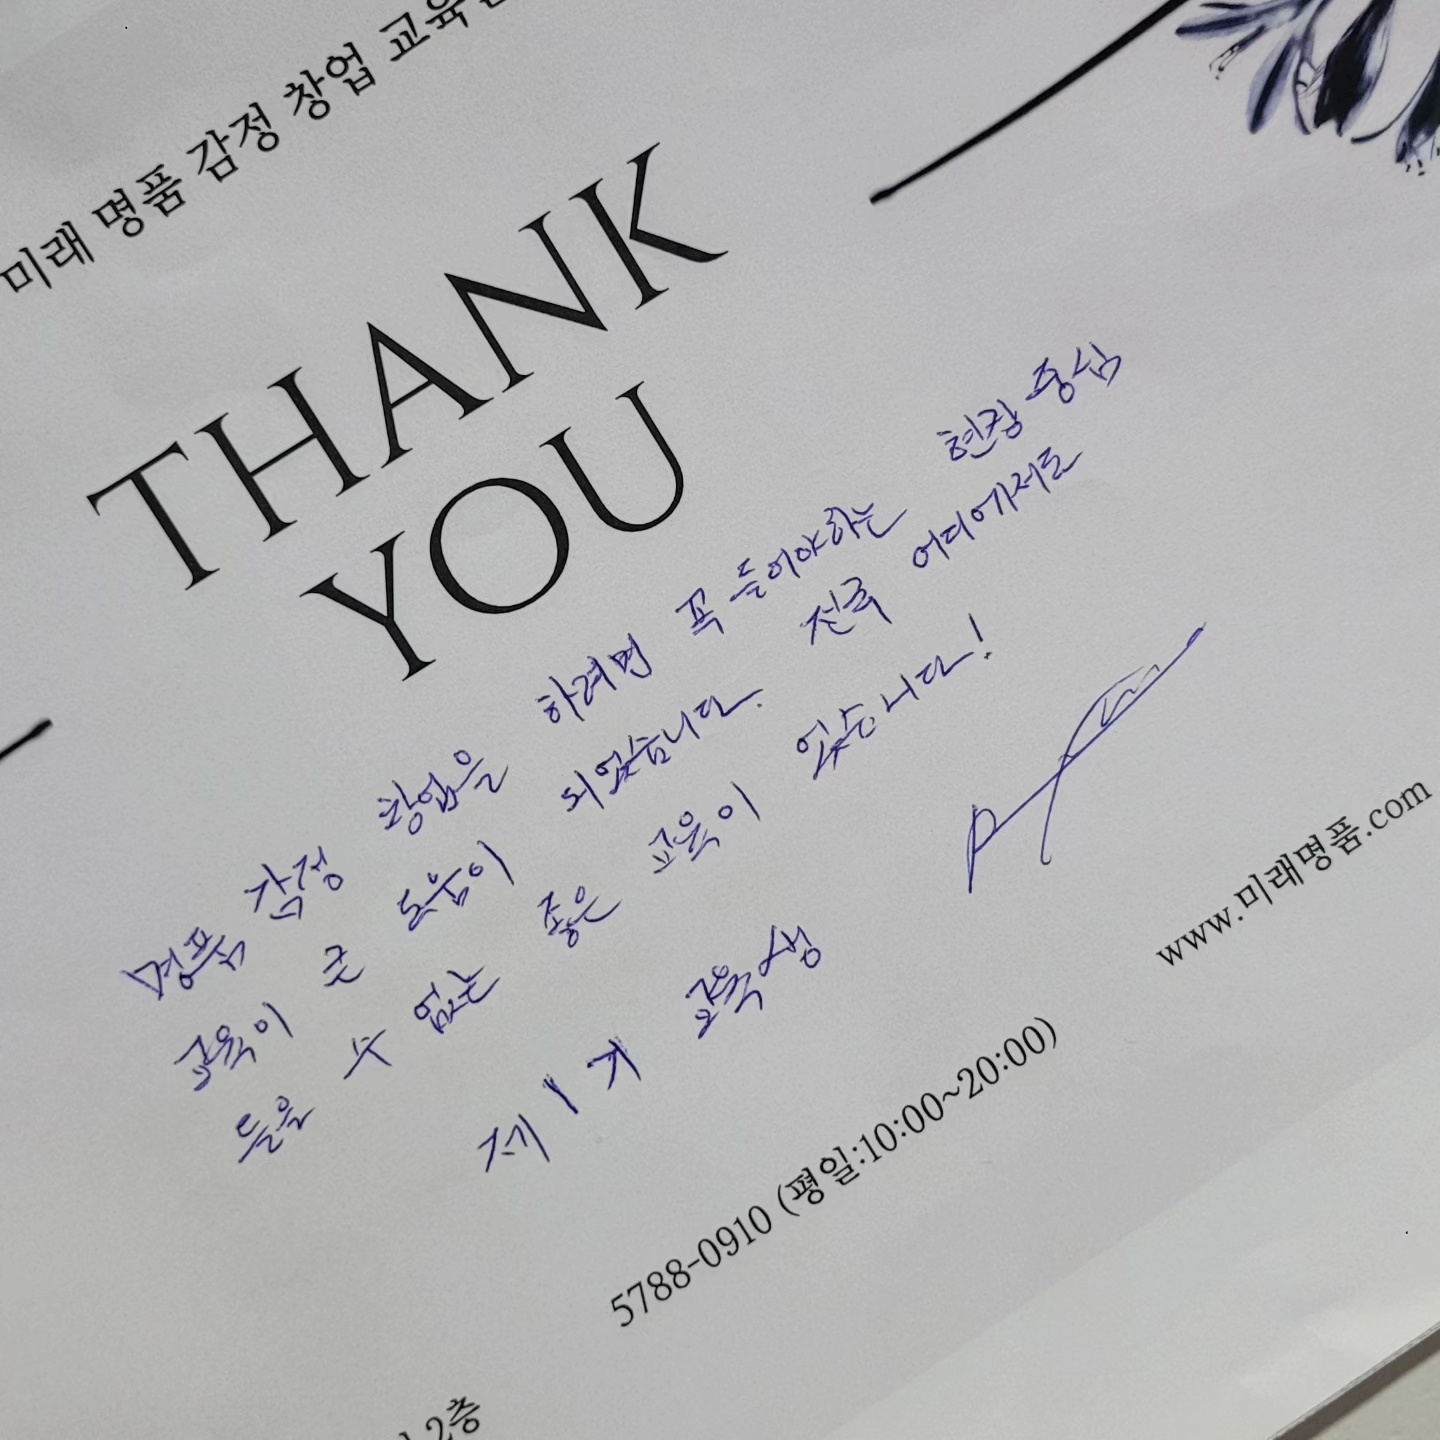 미래 명품 감정 창업 교육
THANK
YOU
명품 감정 창업을 하려면 꼭 들어야하는 현장 중심
교육이 큰 도움이 되었습니다. 전국 어디에서도
들을 수 없는 좋은 교육이 있습니다!
제 1기 교육생
www.미래명품.com
5788-0910 (평일:10:00~20:00)
2층